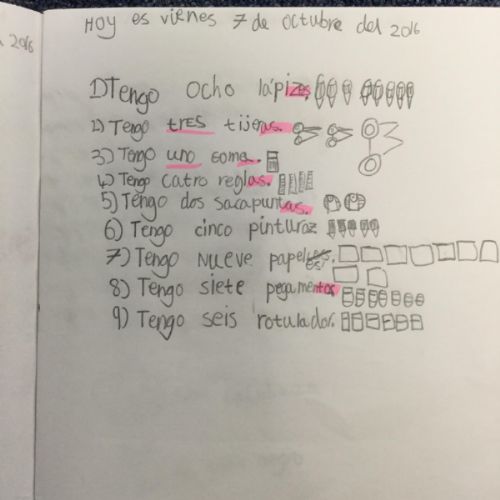 2016
Hoy es vienes 7 de octubre del 2016
1) Tengo ocho lápizes.
2) Tengo tres tijeras.
3) Tengo uno goma.
4) Tengo catro reglas.
5) Tengo dos sacapuntas.
6) Tengo cinco pinturaz
7) Tengo nueve papeles.
8) Tengo siete pegamentos
9) Tengo seis rotulador.